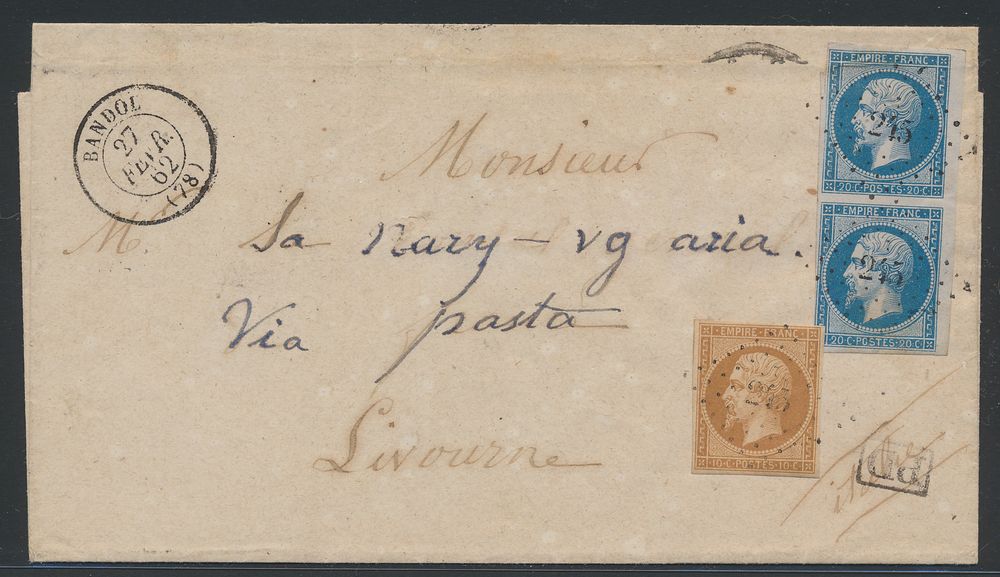 BANDOL
27
FEVR.
62
(78)
EMPIRE FRANC
245
20 C POSTES 20 C
EMPIRE FRANC
245
20 C POSTES 20 C
Monsieur
M.
Sa nary - vg aria.
Via pasta
EMPIRE FRANC
245
10 C POSTES 10 C
Livourne
PD